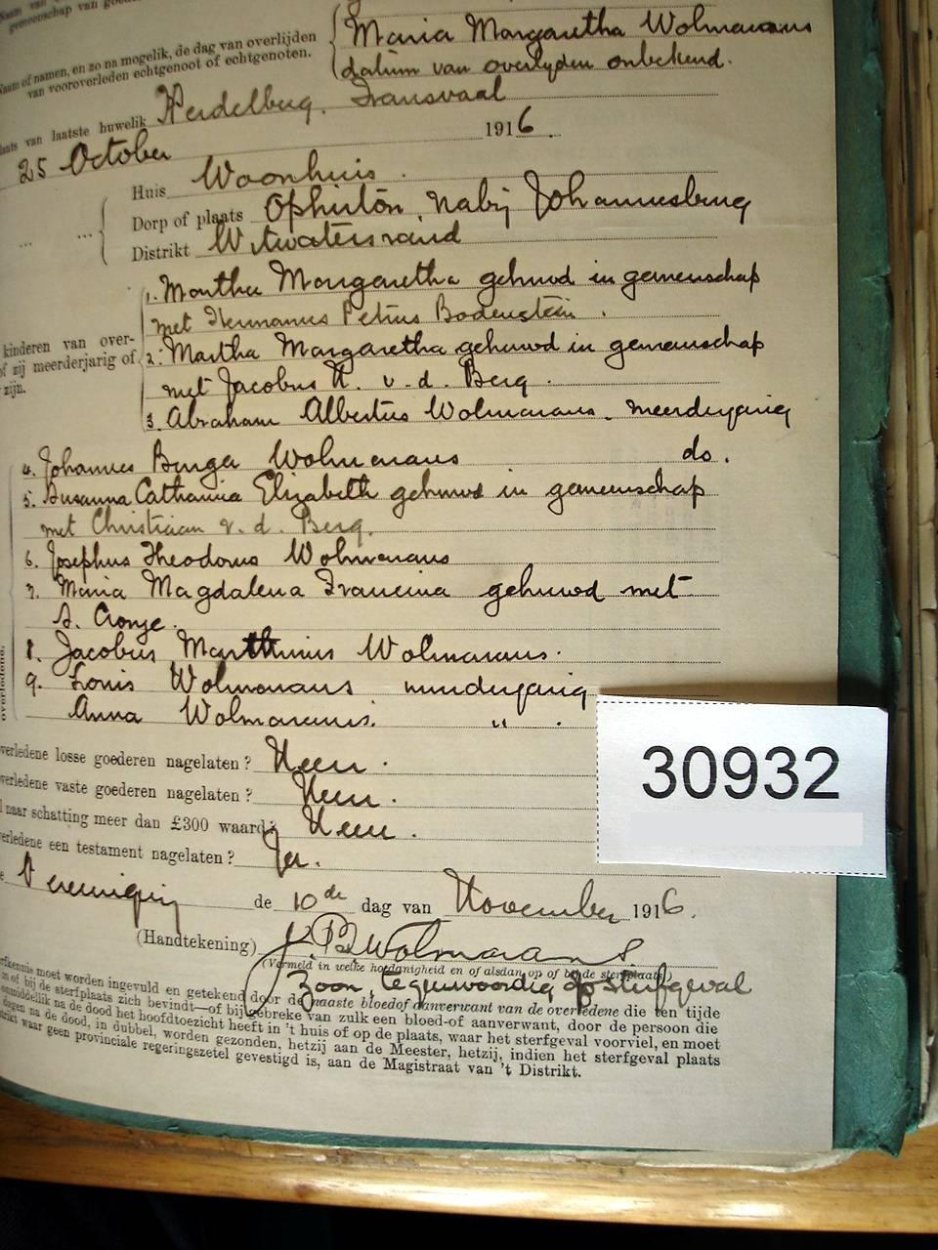 gemeenschap van
Naam of namen, en zo na mogelik, de dag van overlijden
van vooroverleden echtgenoot of echtgenoten.
Maria Margaretha Wolmarans
datum van overlyden onbekend.
van laatste huwelik Heidelberg. Transvaal
25 October 1916.
Huis Woonhuis.
Dorp of plaats Ophirton, nabij Johannesburg
Distrikt Witwatersrand
1. Martha Margaretha gehuwd in gemeenschap
met Hermanus Petrus Badenstein.
kinderen van over-
of zij meerderjarig of
zijn.
2. Martha Margaretha gehuwd in gemeenschap
met Jacobus H. v. d. Berg.
3. Abraham Albertus Wolmarans. meerderjarig
4. Johannes Burger Wolmarans do.
5. Susanna Catharina Elizabeth gehuwd in gemeenschap
met Christiaan v. d. Berg.
6. Josephus Theodorus Wolmarans
7. Maria Magdalena Francina gehuwd met
A. Cronje.
8. Jacobus Marthinus Wolmarans.
9. Louis Wolmarans minderjarig
Anna Wolmarans. " .
overledene.
overledene losse goederen nagelaten? Neen.
overledene vaste goederen nagelaten? Neen.
naar schatting meer dan £300 waard? Neen.
overledene een testament nagelaten? Ja.
30932
Vereeniging de 10de dag van November 1916.
(Handtekening) J. B. Wolmarans
(Vermeld in welke hoedanigheid en of alsdan op of bij de sterfplaats)
Zoon, tegenwoordig op sterfgeval
moet worden ingevuld en getekend door de naaste bloed of aanverwant van de overledene die ten tijde
of bij de sterfplaats zich bevindt—of bij gebreke van zulk een bloed-of aanverwant, door de persoon die
onmiddellik na de dood het hoofdtoezicht heeft in 't huis of op de plaats, waar het sterfgeval voorviel, en moet
dagen na de dood, in dubbel, worden gezonden, hetzij aan de Meester, hetzij, indien het sterfgeval plaats
waar geen provinciale regeringszetel gevestigd is, aan de Magistraat van 't Distrikt.